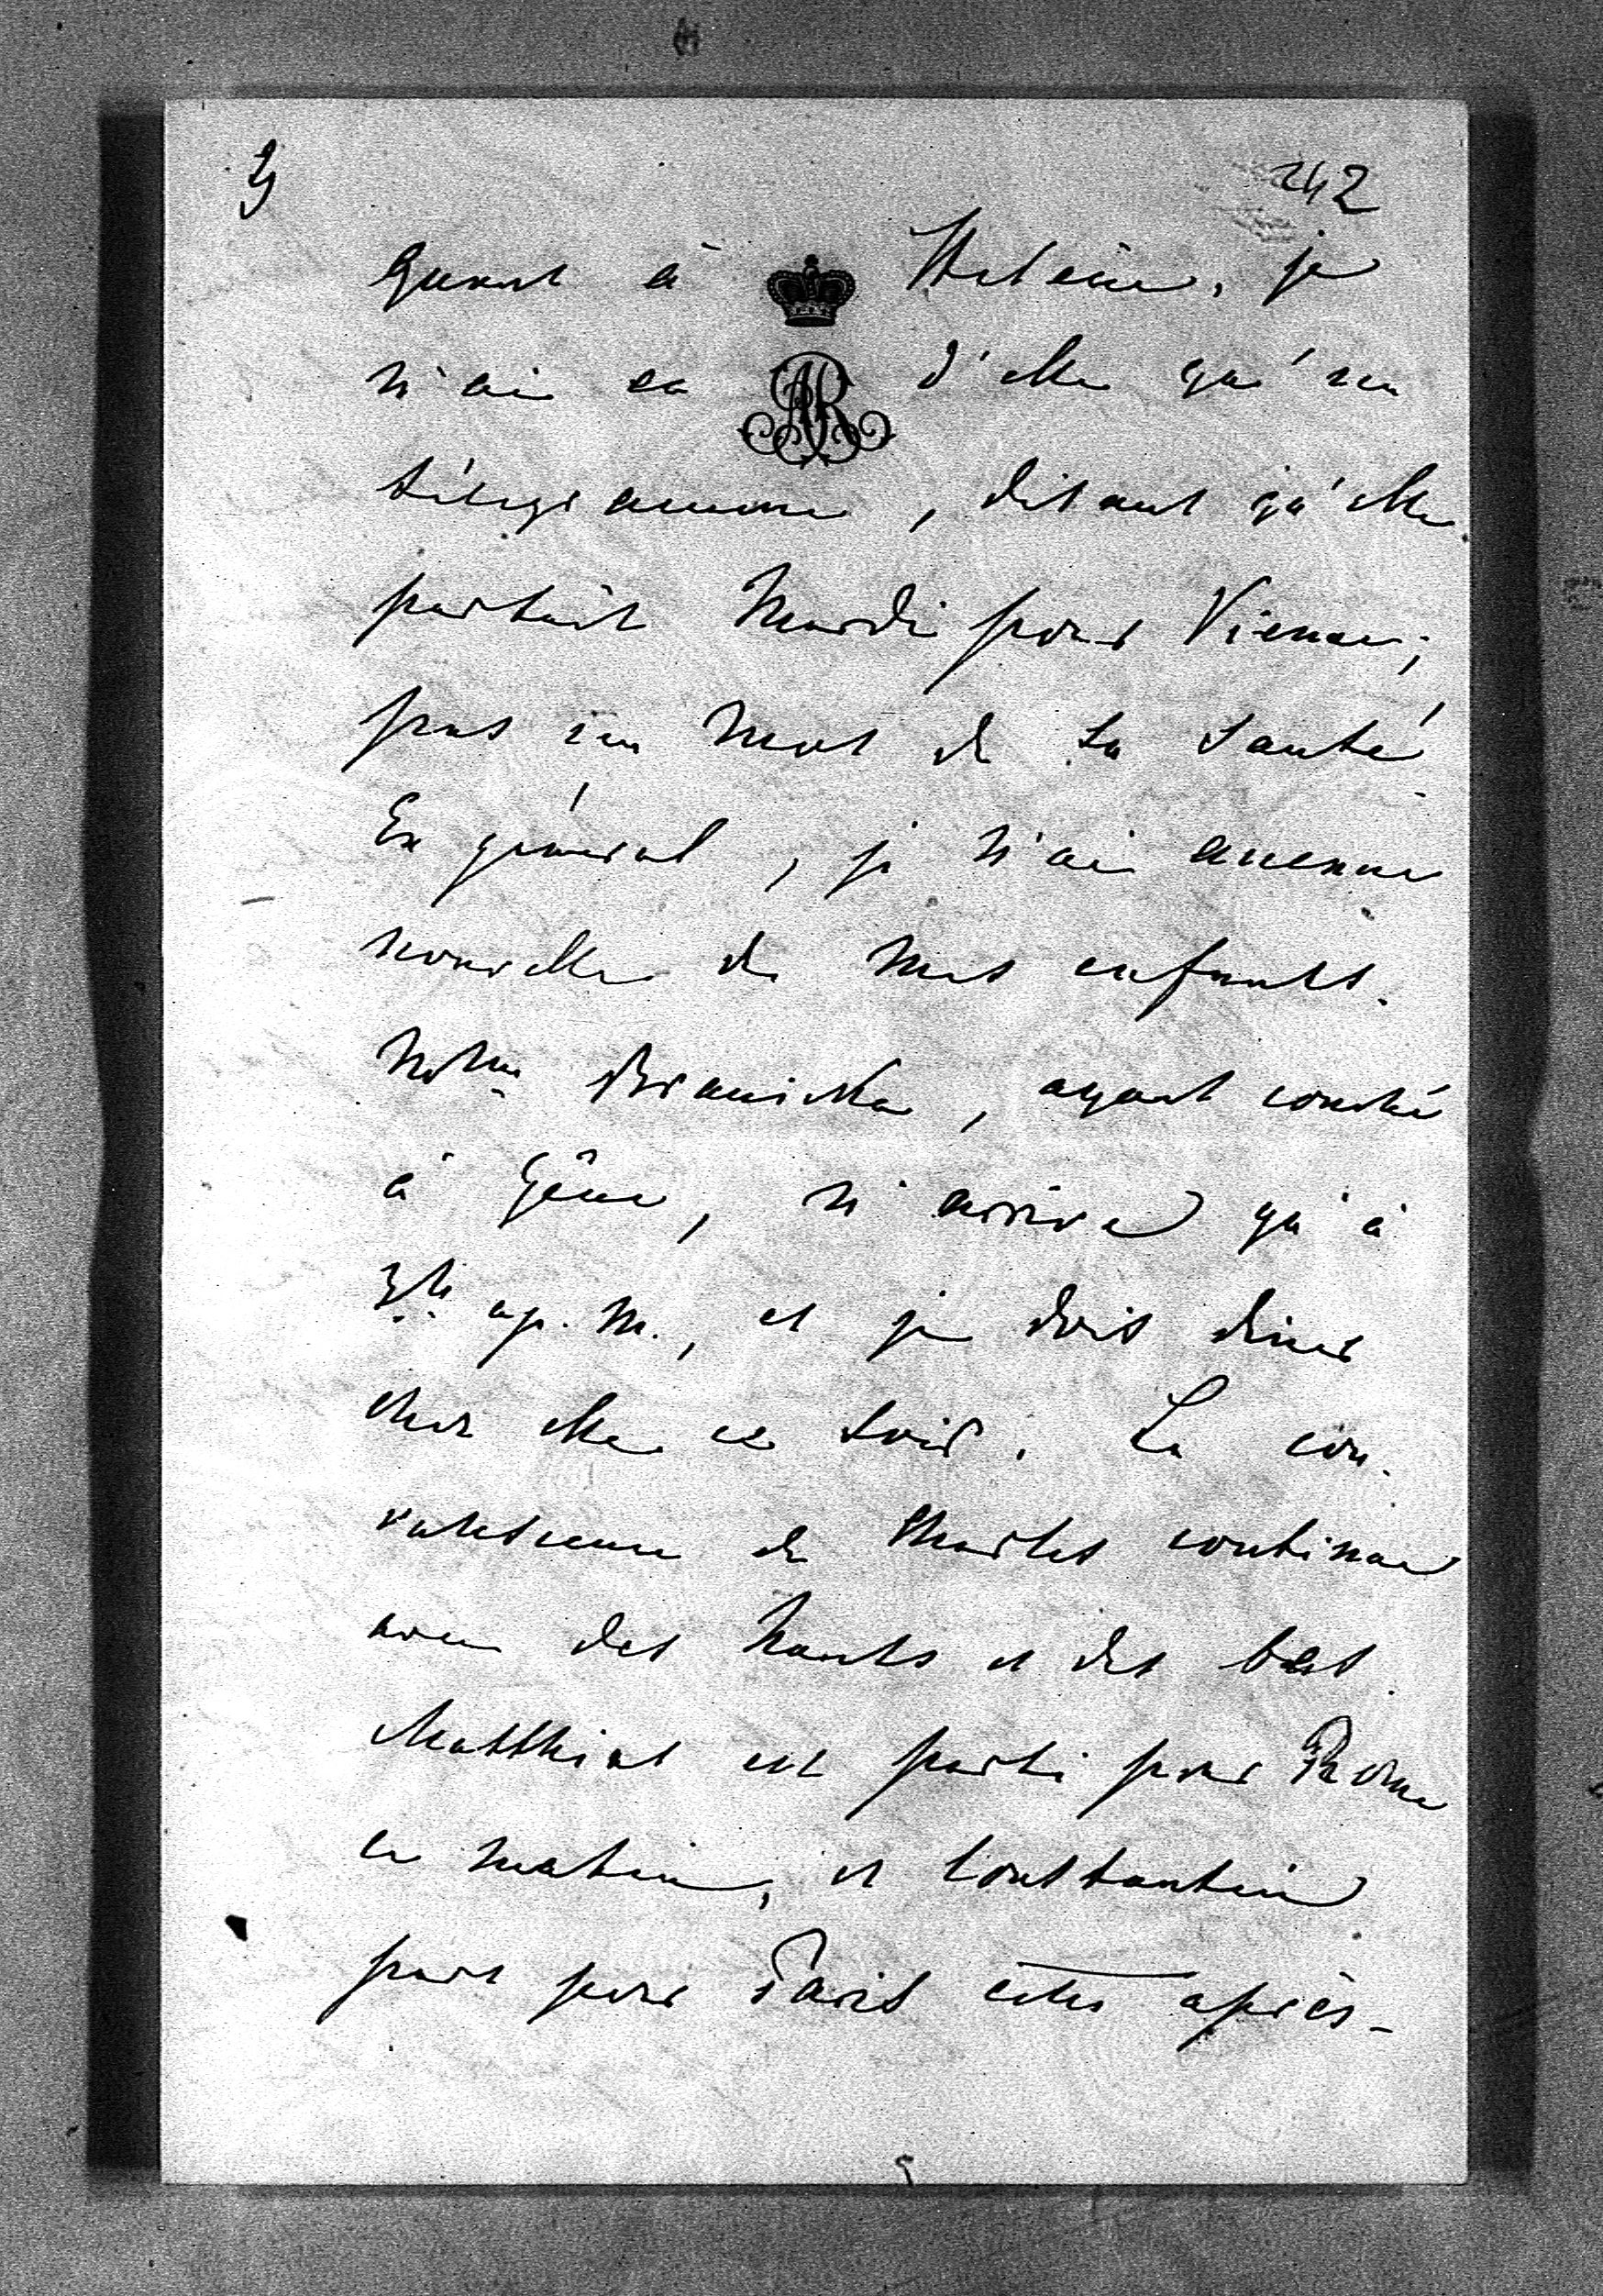 3
242
Quant à Helène, je
n'ai eu d'elle qu'un
télégramme, disant qu'elle
partait Mardi pour Vienne;
pas un mot de sa santé.
En général, je n'ai aucune
nouvelle de mes enfants.
Mme Branicka, ayant couché
à Gêne, n'arrive qu'à
3h ap. m., et je dois diner
chez elle ce soir. La con-
valescence de Charles continue
avec des hauts et des bas.
Matthias est parti pour Rome
ce matin, et Constantin
part pour Paris cette après-